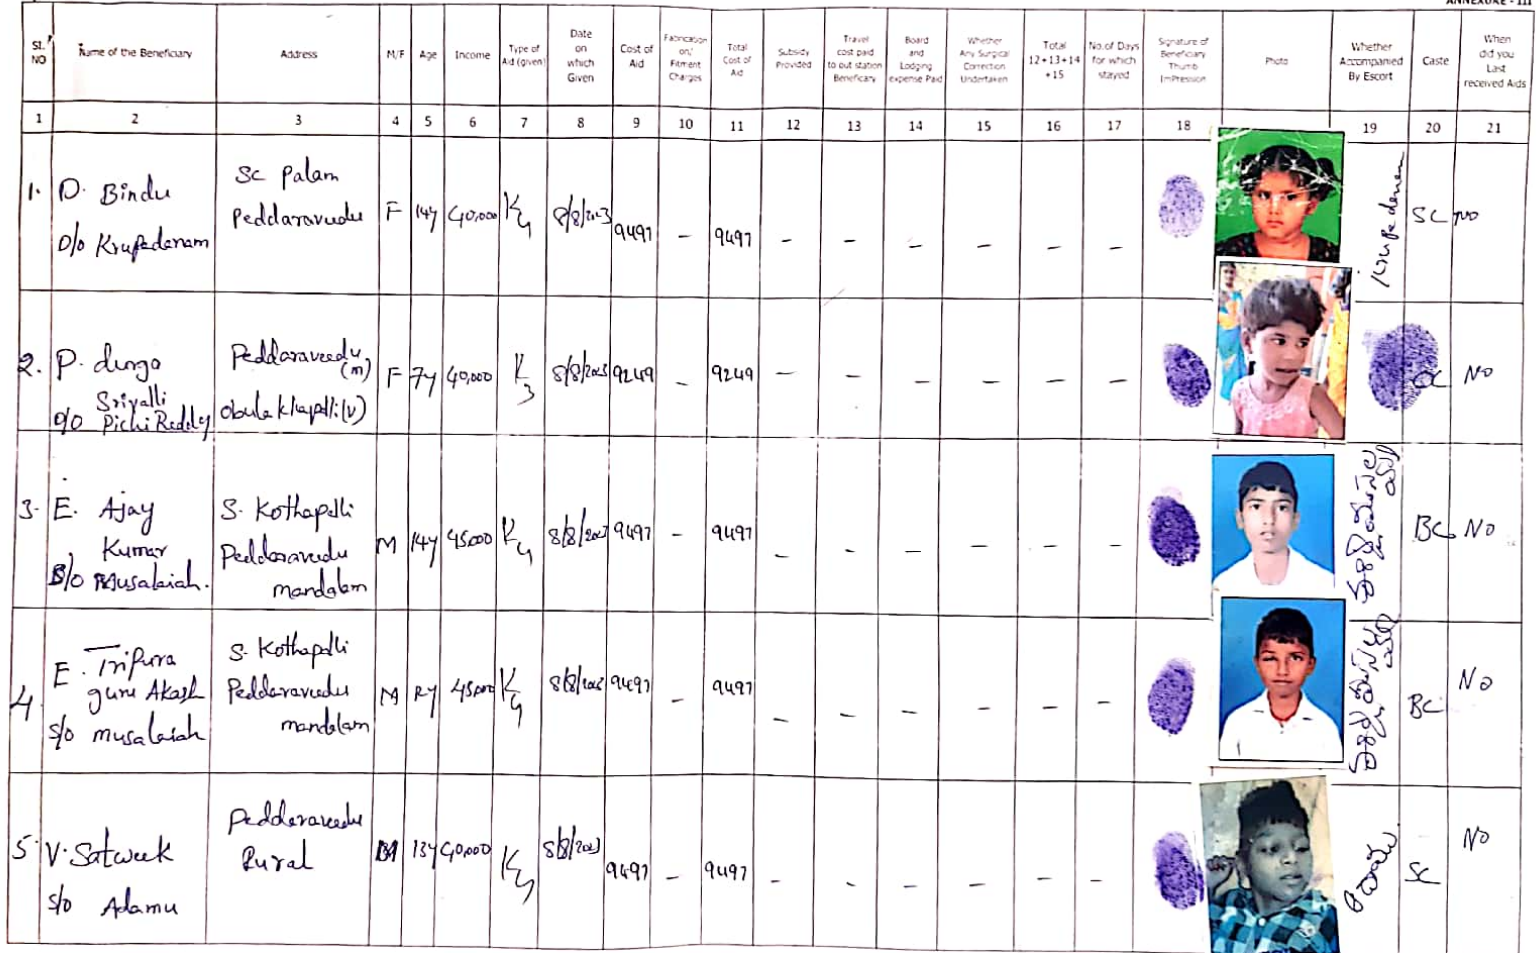 ANNEXURE - III
Sl. NO
Name of the Beneficiary
Address
M/F
Age
Income
Type of Aid (given)
Date on which Given
Cost of Aid
Fabrication on/ Fitment Charges
Total Cost of Aid
Subsidy Provided
Travel cost paid to out station Beneficiary
Board and Lodging expense Paid
Whether Any Surgical Correction Undertaken
Total 12+13+14 +15
No.of Days for which stayed
Signature of Beneficiary Thumb ImPression
Photo
Whether Accompanied By Escort
Caste
When did you Last received Aids
1 2 3 4 5 6 7 8 9 10 11 12 13 14 15 16 17 18 19 20 21
1. D. Bindu
D/o Krupadanam
SC Palam
Peddaravudu
F 14y 40,000 K4 8/8/2023 9497 - 9497 - - - - - - Krupadanam SC NO
2. P. durga
Srivalli
D/o Pichi Reddy
Peddaraveedu
(m)
Obulakkapalli (v)
F 7y 40,000 K3 8/8/2023 9249 - 9249 - - - - - - OC NO
3. E. Ajay
Kumar
S/o Musalaiah.
S. Kothapalli
Peddaravudu
mandalam
M 14y 45000 K4 8/8/2023 9497 - 9497 - - - - - - BC NO
4. E. Tripura
guru Akash
S/o musalaiah
S. Kothapalli
Peddaravudu
mandalam
M 45000 K4 8/8/2023 9497 - 9497 - - - - - - BC NO
5. V. Satweek
S/o Adamu
Peddaraveedu
Rural
M 13y 40,000 K4 8/8/2023 9497 - 9497 - - - - - - ఆదాము SC NO